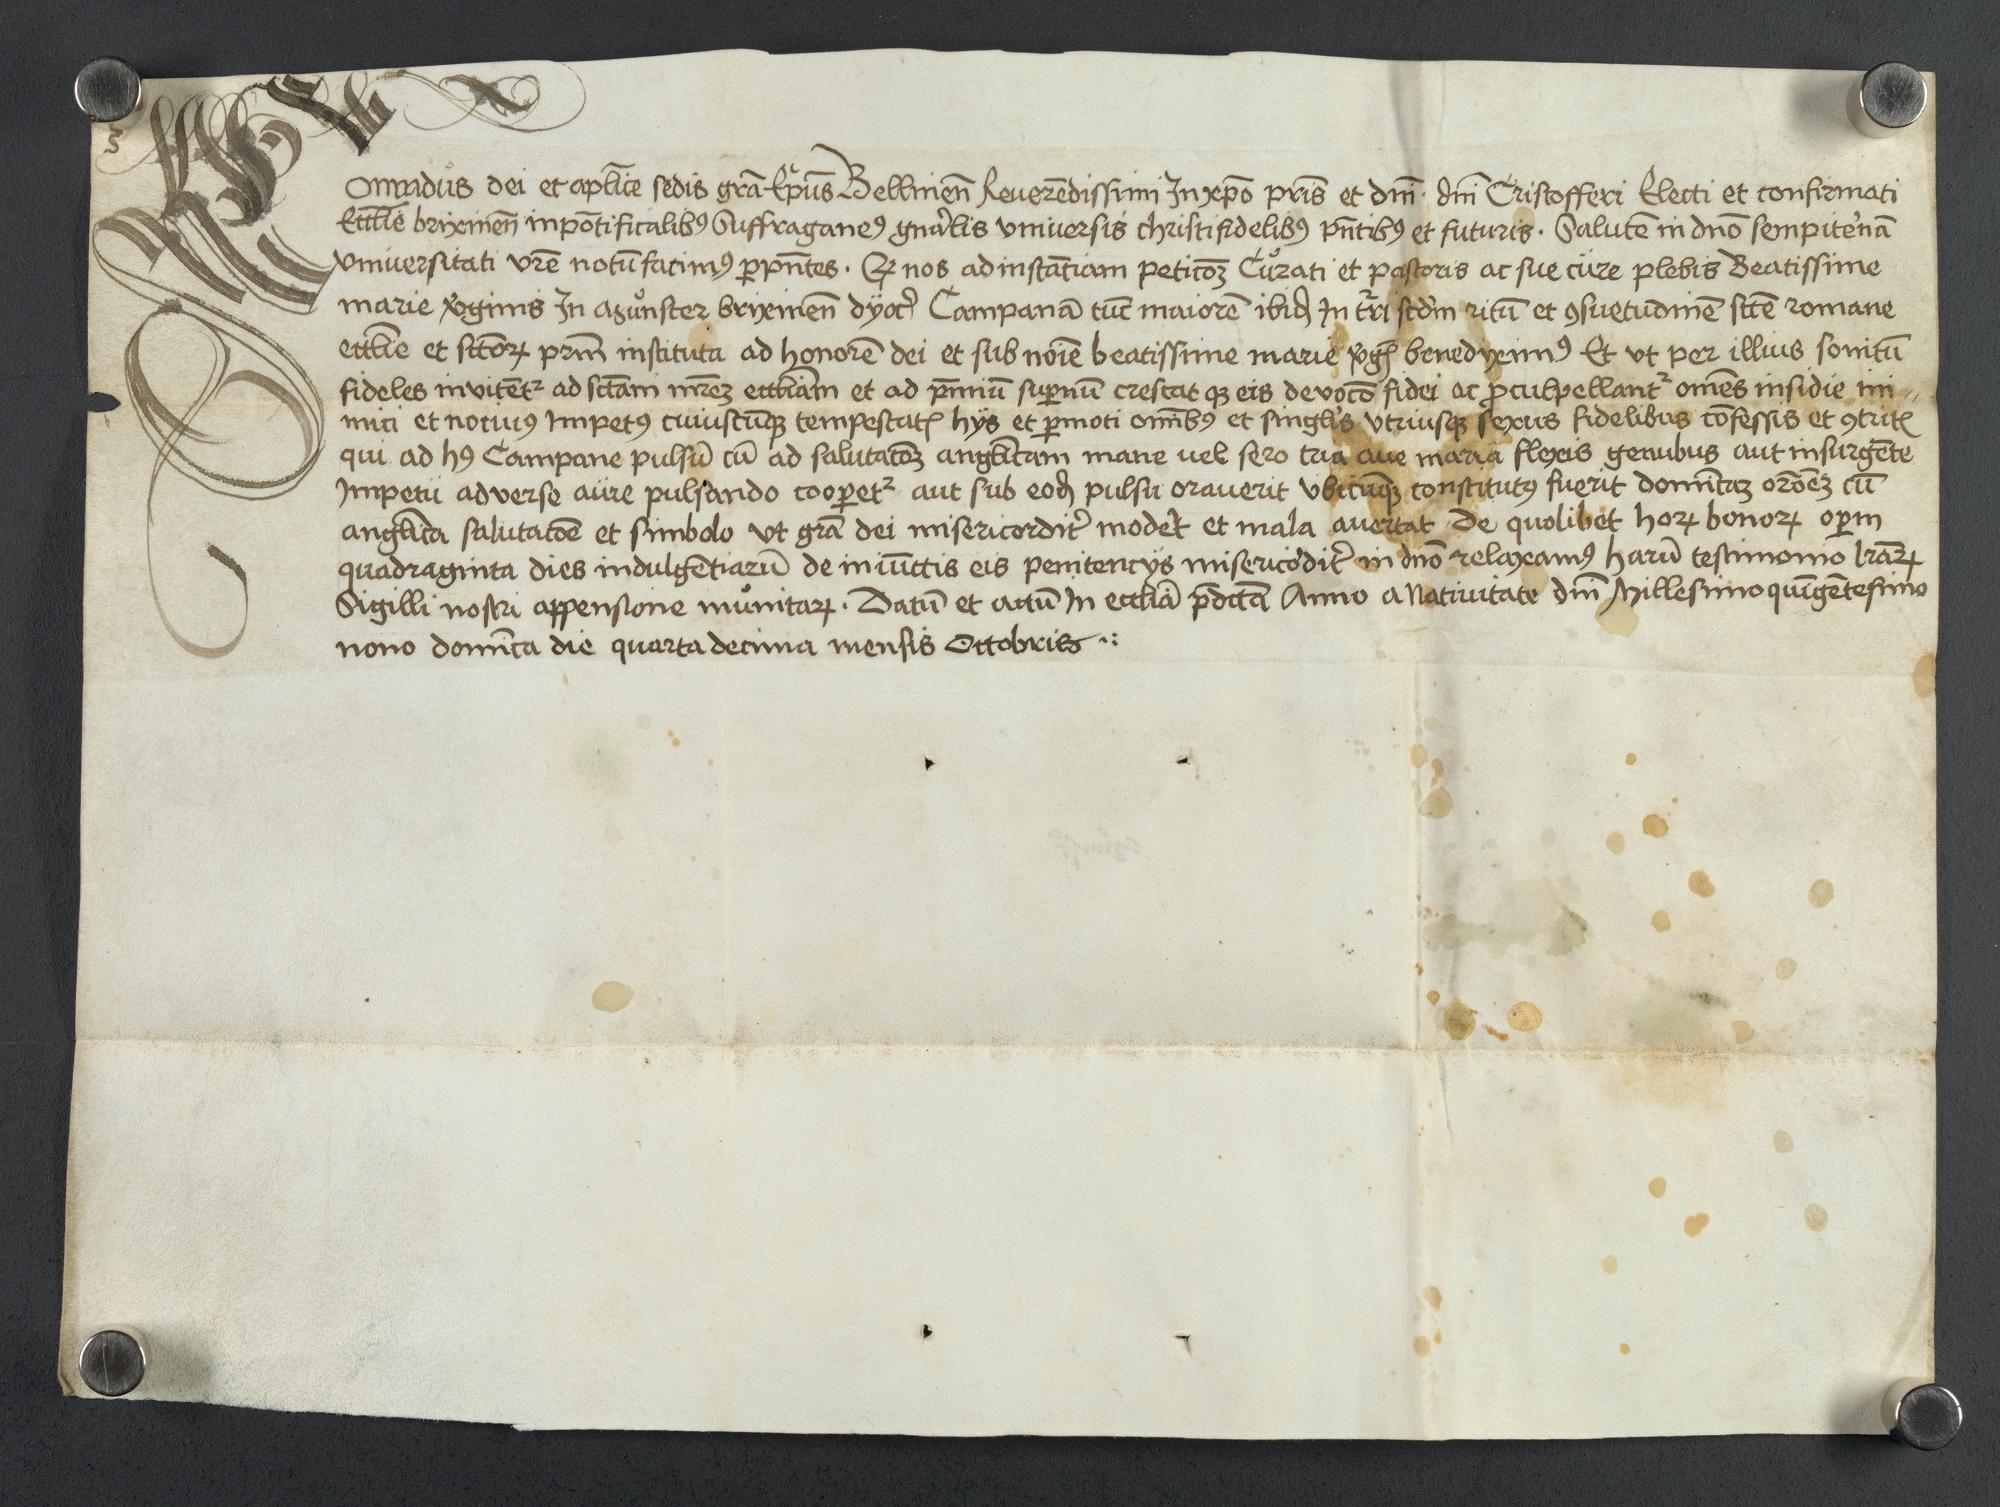 Conradus dei et aplice sedis grā Ep̄us Bellinen̄ Reverēdissimi In xp̄o pr̄is et dn̄i dn̄i Cristofferi Electi et confirmati
Eccl̄ie brixinen̄ in pōtificalibꝰ Suffraganeꝰ gnāl̄is vniversis christifidelibꝰ pn̄tibꝰ et futuris. Salutē in dn̄o sempit̄nā
vniversitati vr̄e notū facimꝰ p̲pn̄tes. Qꝫ nos ad instātiam peticōꝫ Curati et pastoris ac sue cure plebis Beatissime
marie v̄ginis In Aguнster brixinen̄ dyoc̄ Campanā tūc maiorē ibiđ In tr̄ri scd̄m ritū et ꝯsuetudinē sct̄e romane
eccl̄ie et sct̄oꝝ prm̄ instituta ad honorē dei et sub noīe beatissime marie v̄gīs benediximꝰ Et vt per illius sonitū
fideles invitēt᷑ ad sct̄am mr̄eꝫ eccl̄iam et ad p̄miū sup̲nū crescat qꝫ eis devocō fidei ac ꝓcul pellant᷑ om̄es insidie ini„
mici et nocivꝰ Impetꝰ cuiuscūqꝫ tempestatꝭ hys et p̲moti om̄ibꝰ et singl̄is vtriusqꝫ sexus fidelibus cōfessis et ꝯtritꝭ
qui ad hꝰ Campane pulsū cū ad salutacōꝫ angl̄icam mane vel sero tria ave maria flexis genubus aut insurgēte
Impetu adverse aure pulsando coop̲et᷑ aut sub eođ pulsu oraverit vbicūqꝫ constitutꝰ fuerit domīcaꝫ orōēꝫ cū
angl̄ica salutacōe et simbolo vt grā dei misericordit̄ modēt et mala avertat De quolibet hoꝝ bonoꝝ op̲m
quadraginta dies indulgētiarū de iniūctis eis penitencys misericordit̄ in dn̄o relaxamꝰ harū testimonio lr̄aꝝ
Sigilli nostri appensione munitaꝝ. Datū et actū In eccl̄ia p̄dict̄a Anno a Nativitate dn̄i Millesimo quīgētesimo
nono domīca die quarta decima mensis Octobris